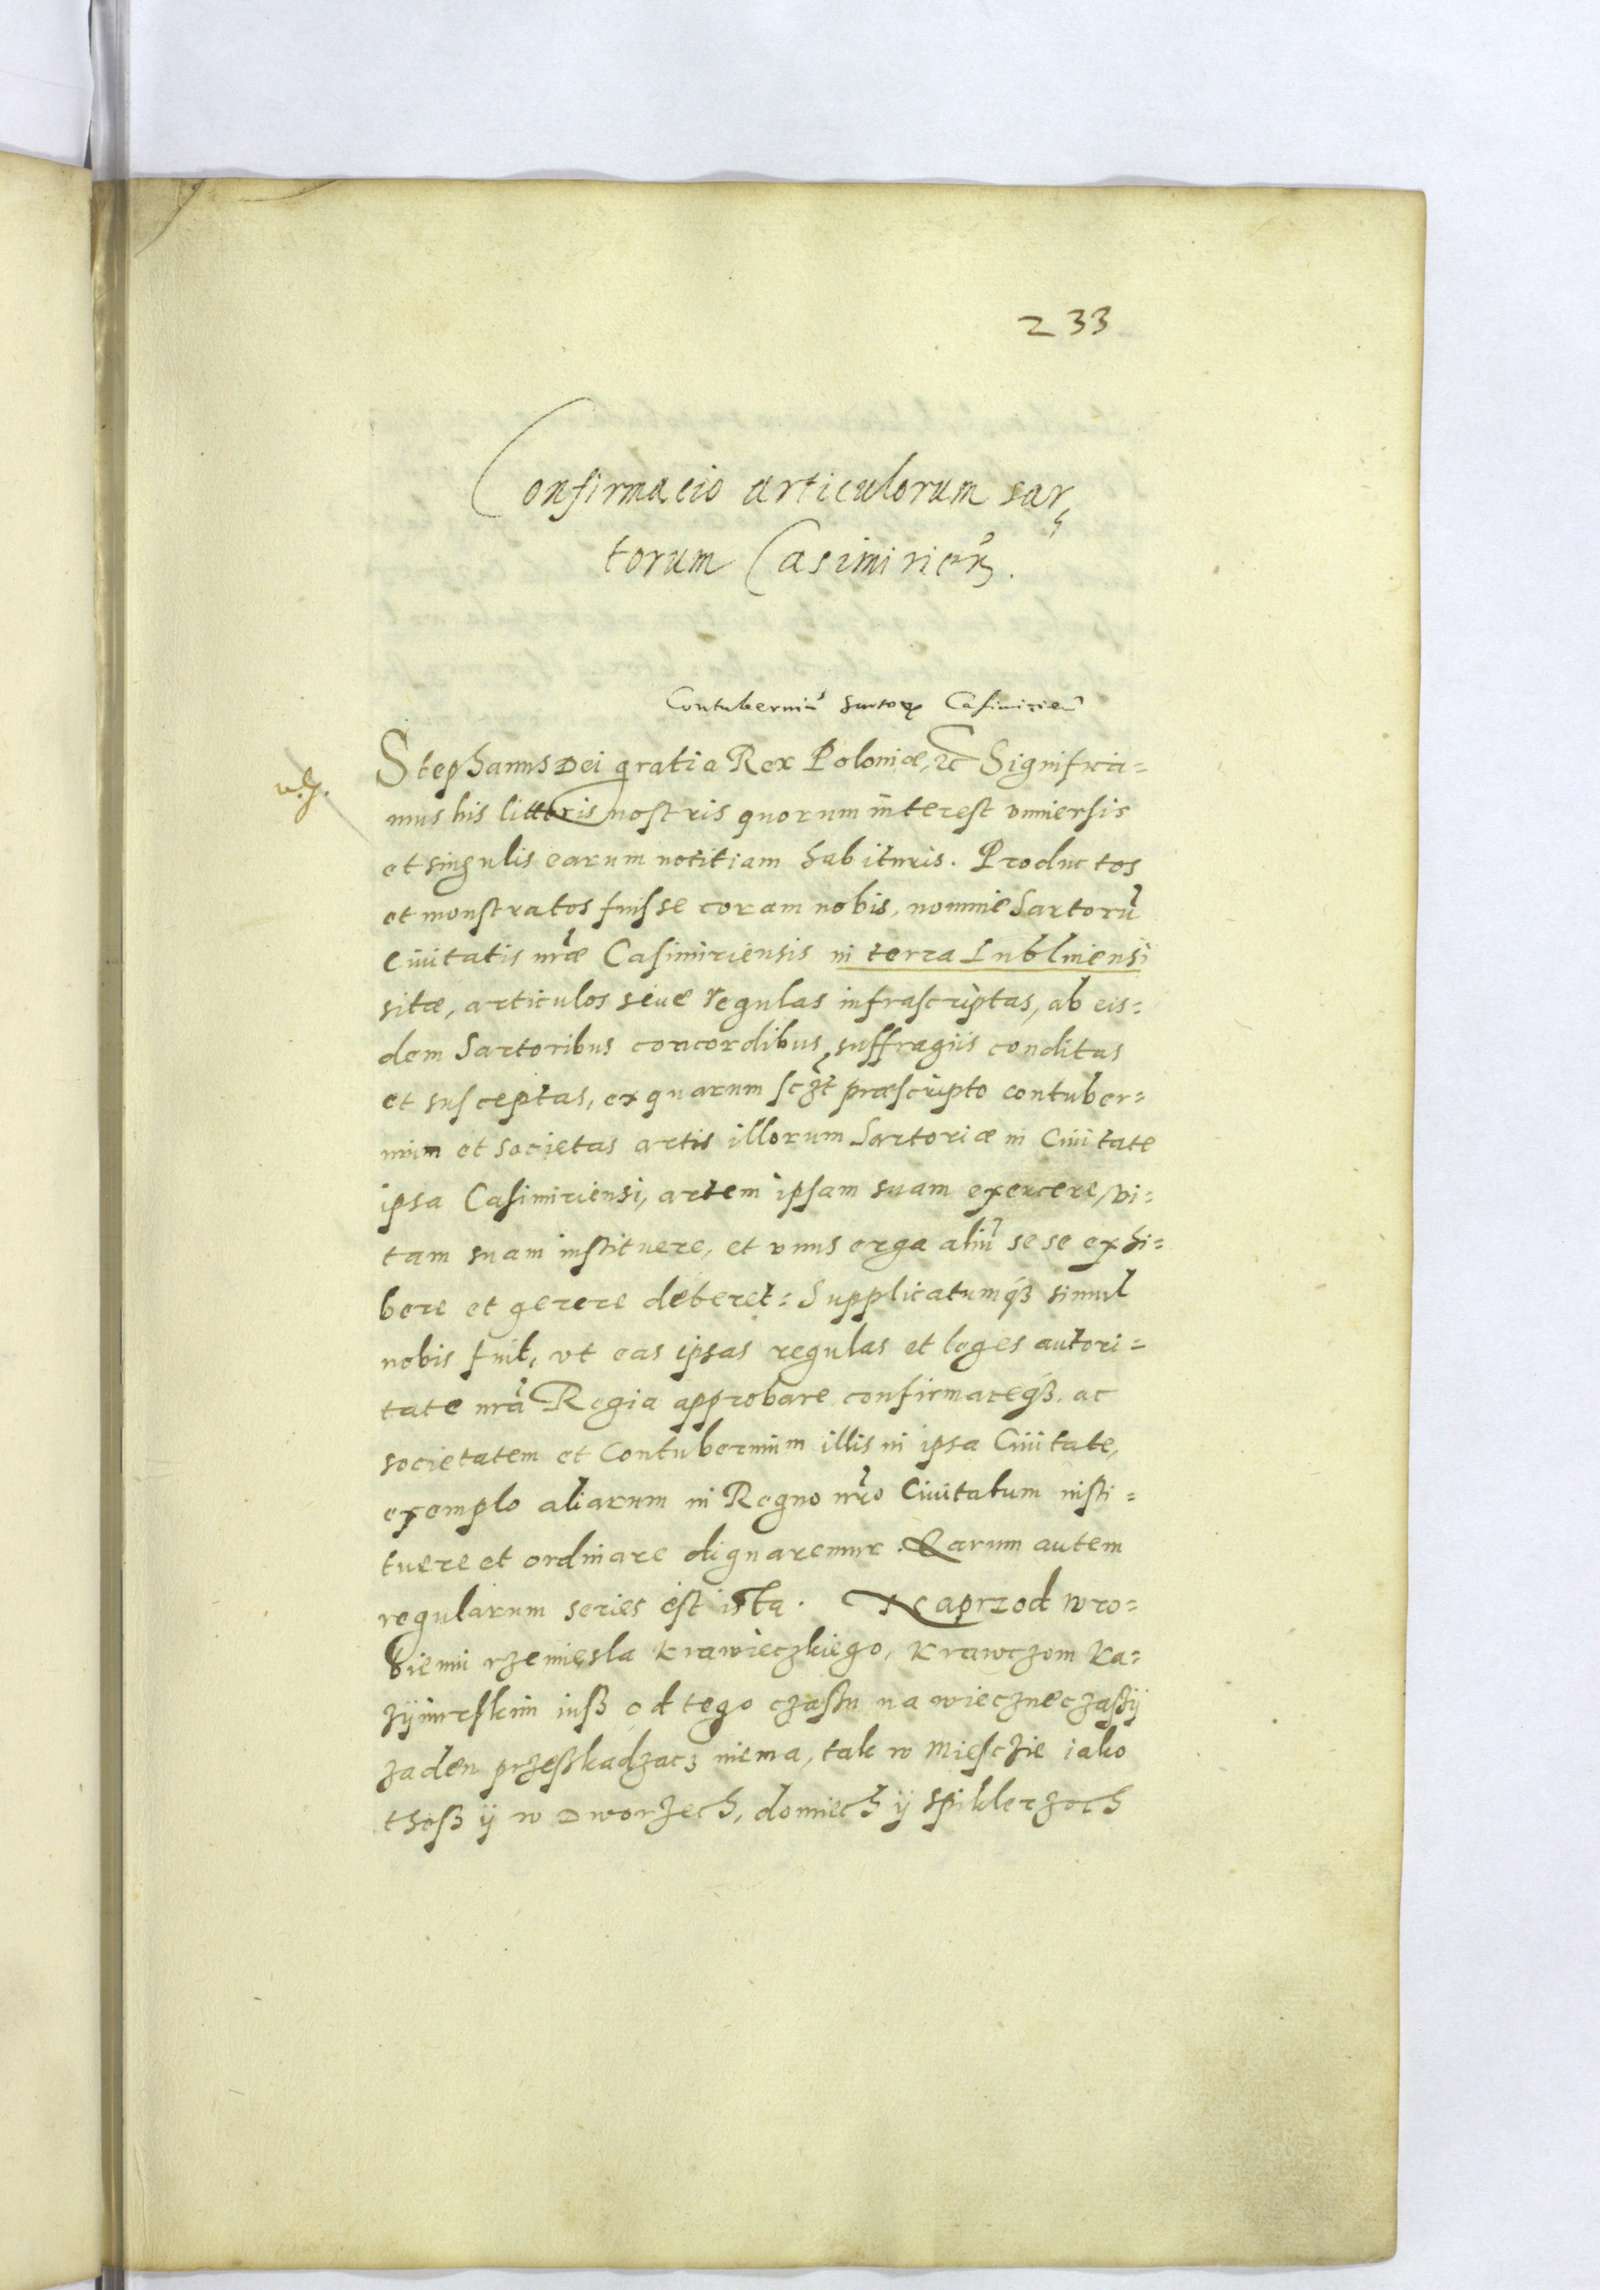 233
Confirmacio articulorum sar,
torum Casimirień.
Contuberniū Sartorꝝ Casimirien̄
Stephanus Dei gratia Rex Poloniæ, ꝛc Significa=
mus his litteris nostris quorum interest vniuersis
et singulis earum notitiam habituris. Productos
et monstratos fuisse coram nobis, nomine Sartorū
Ciuitatis nr̄æ Casimiriensis in terra Lublinensi
sitæ, articulos siue regulas infrascriptas, ab eis=
dem Sartoribus concordibus suffragiis conditas
et susceptas, ex quarum scꝫt præscripto contuber=
nium et societas artis illorum Sartoriæ in Ciuitate
ipsa Casimiriensi, artem ipsam suam exercere, vi=
tam suam instituere, et vnus erga aliū se se exhi=
bere et gerere deberet: Supplicatumqꝫ simul
nobis fuit, vt eas ipsas regulas et leges autori=
tate nr̄a Regia approbare confirmareqꝫ, ac
societatem et Contubernium illis in ipsa Ciuitate,
exemplo aliarum in Regno nr̄o Ciuitatum insti=
tuere et ordinare dignaremur. Earum autem
regularum series est ista. Naprzod w ro=
biemu rzemięsla Krawieczkiego, Krawczom Ka=
zÿmirskim iuß od tego czaßu na wieczne czaßÿ
zaden przeßkadzacz niema, tak w Miesczie iako
theß ÿ w Dworzech, domiech ÿ Spiklerzoch